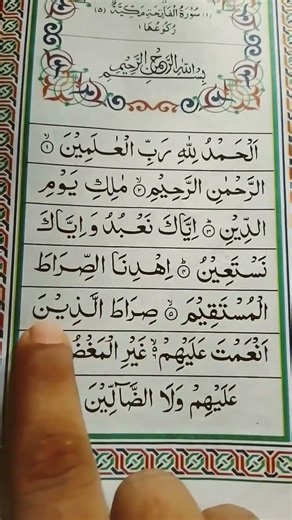 (۱) سُوْرَةُ الْفَاتِحَةِ مَكِّيَّةٌ (۵)
رُكُوْعُهَا ۱
بِسْمِ اللّٰهِ الرَّحْمٰنِ الرَّحِيْمِ
اَلْحَمْدُ لِلّٰهِ رَبِّ الْعٰلَمِيْنَ ۙ﴿۱﴾
الرَّحْمٰنِ الرَّحِيْمِ ۙ﴿۲﴾ مٰلِكِ يَوْمِ
الدِّيْنِ ؕ﴿۳﴾ اِيَّاكَ نَعْبُدُ وَ اِيَّاكَ
نَسْتَعِيْنُ ؕ﴿۴﴾ اِهْدِنَا الصِّرَاطَ
الْمُسْتَقِيْمَ ۙ﴿۵﴾ صِرَاطَ الَّذِيْنَ
اَنْعَمْتَ عَلَيْهِمْ ۙ۬ غَيْرِ
عَلَيْهِمْ وَلَا الضَّآلِّيْنَ